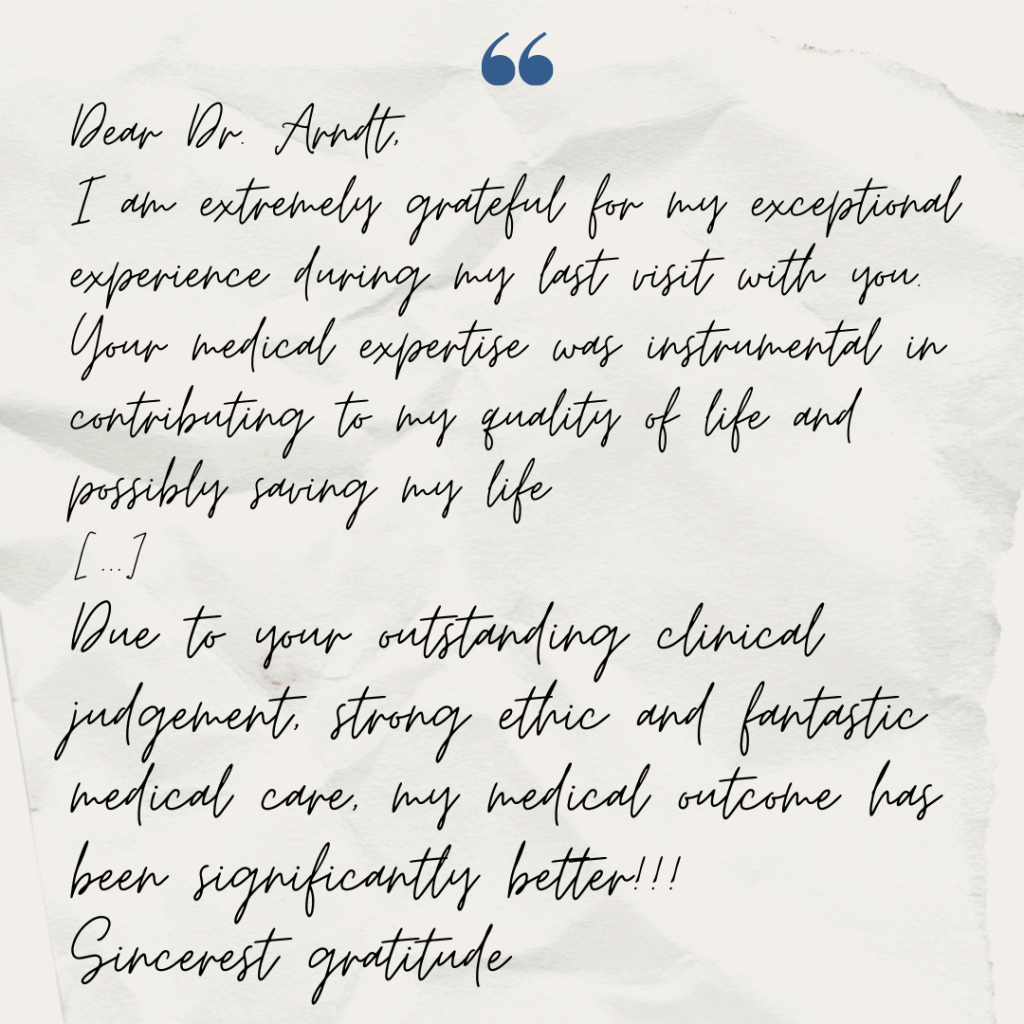 “
Dear Dr. Arndt,
I am extremely grateful for my exceptional
experience during my last visit with you.
Your medical expertise was instrumental in
contributing to my quality of life and
possibly saving my life
[...]
Due to your outstanding clinical
judgement, strong ethic and fantastic
medical care, my medical outcome has
been significantly better!!!
Sincerest gratitude